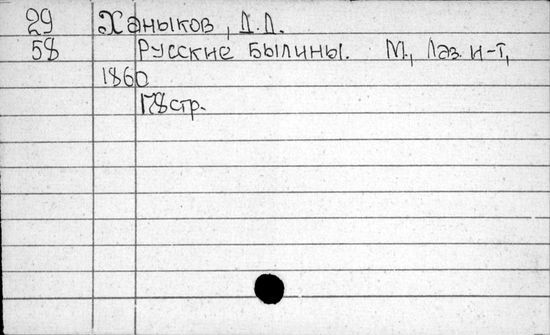 29 Ханыков, Д.Д.
58 Русские былины. М., Лаз. и-т,
1860
178 стр.